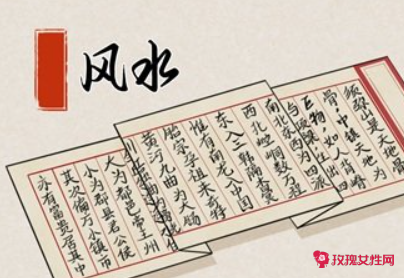 风水
须弥山是天地
骨,中镇天地为
巨物,如人
南北东西为四派
西北崆峒数万程
东入三韩隔杳冥
惟有南龙入中国
胎宗孕祖来奇特
黄河九曲为大肠
大为都邑帝王州
小为郡县君公侯
其次偏方小镇市
亦有富贵居其中
玫瑰女性网